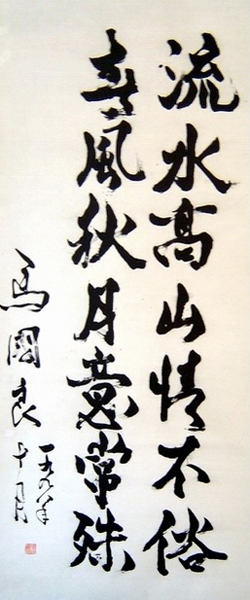 流水高山情不俗
春風秋月意常殊
馬國良
十月